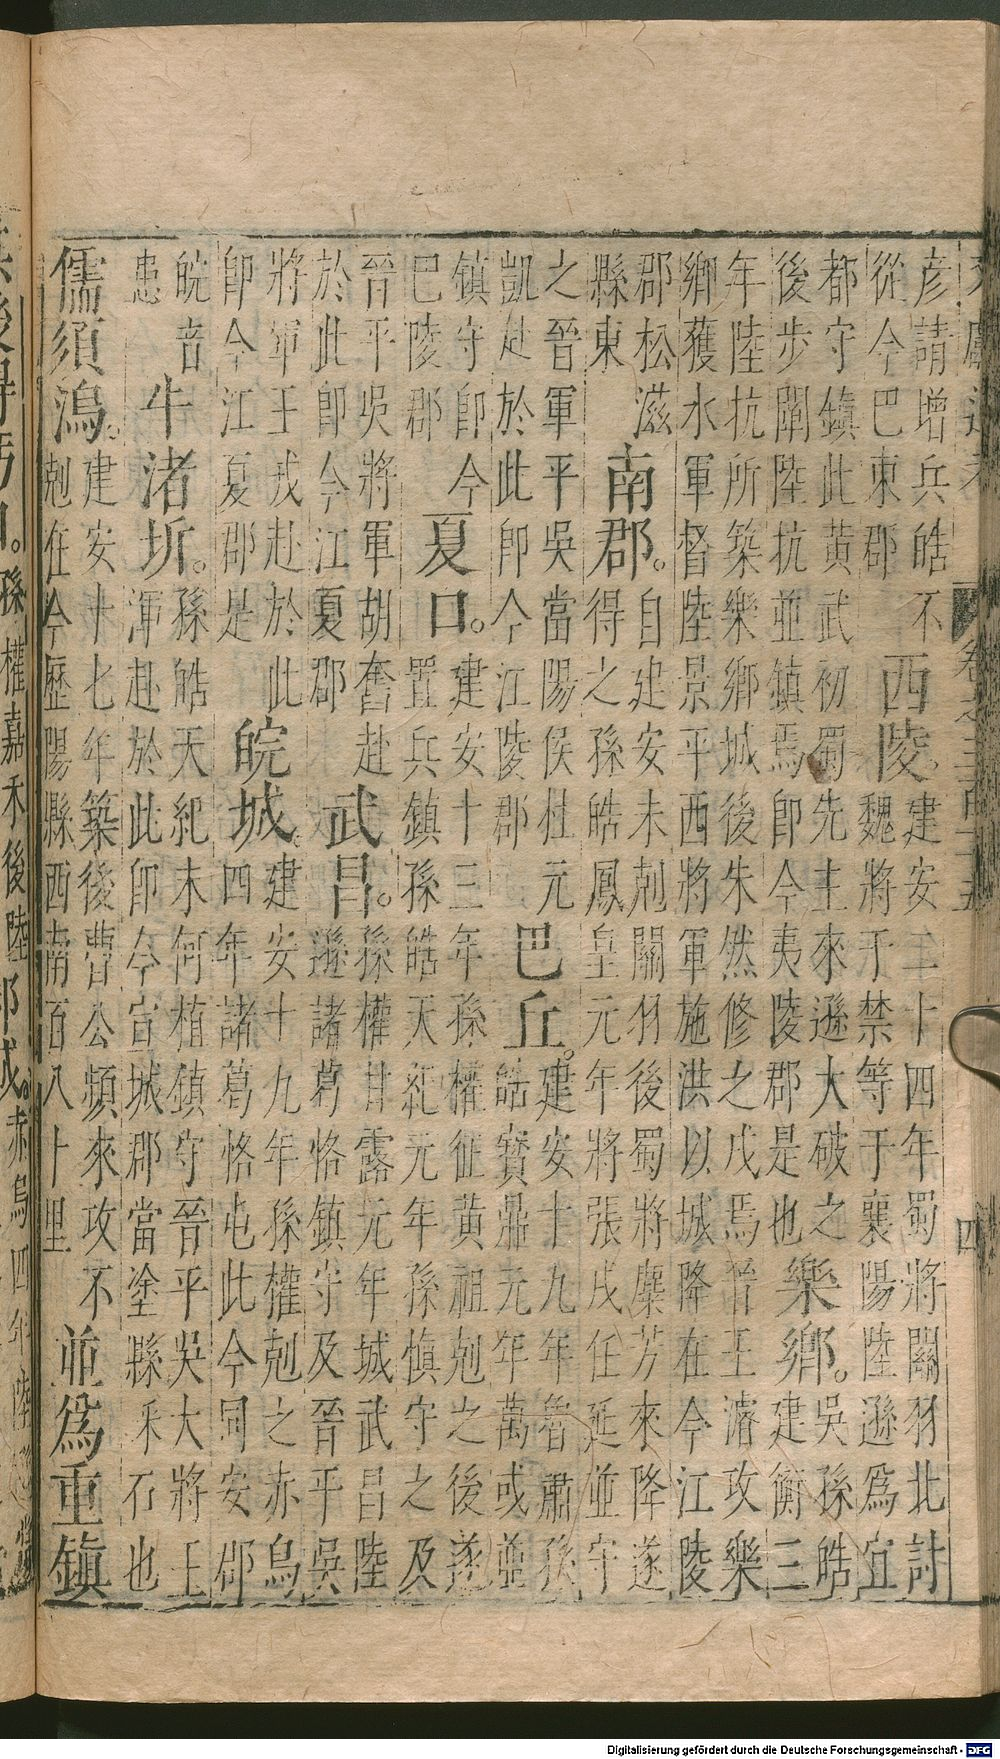 卷之三百十五 四
彥請增兵皓不
從今巴東郡
西陵。
建安二十四年蜀將關羽北討
魏將于禁等于襄陽陸遜爲宜
都守鎮此黃武初蜀先主來遜大破之
後步闡陸抗並鎮焉卽今夷陵郡是也
樂鄉。
吳孫皓
建衡三
年陸抗所築樂鄉城後朱然修之戍焉晉王濬攻樂
鄉獲水軍督陸景平西將軍施洪以城降在今江陵
郡松滋
縣東
南郡。
自建安未剋關羽後蜀將麋芳來降遂
得之孫皓鳳皇元年將張戍任延並守
之晉軍平吳當陽侯杜元
凱赴於此卽今江陵郡
巴丘。
建安十九年魯肅孫
皓寶鼎元年萬或並
鎮守卽今
巴陵郡
夏口。
建安十三年孫權征黃祖剋之後遂
置兵鎮孫皓天紀元年孫慎守之及
晉平吳將軍胡奮赴
於此卽今江夏郡
武昌。
孫權甘露元年城武昌陸
遜諸葛恪鎮守及晉平吳
將軍王戎赴於此
卽今江夏郡是
皖城。
建安十九年孫權剋之赤烏
四年諸葛恪屯此今同安郡
皖音
患
牛渚圻。
孫皓天紀末何植鎮守晉平吳大將王
渾赴於此卽今宣城郡當塗縣釆石也
儒須塢。
建安十七年築後曹公頻來攻不
剋在今歷陽縣西南百八十里
並爲重鎮
孫權嘉禾後陸
赤烏四年陸
Digitalisierung gefördert durch die Deutsche Forschungsgemeinschaft - DFG